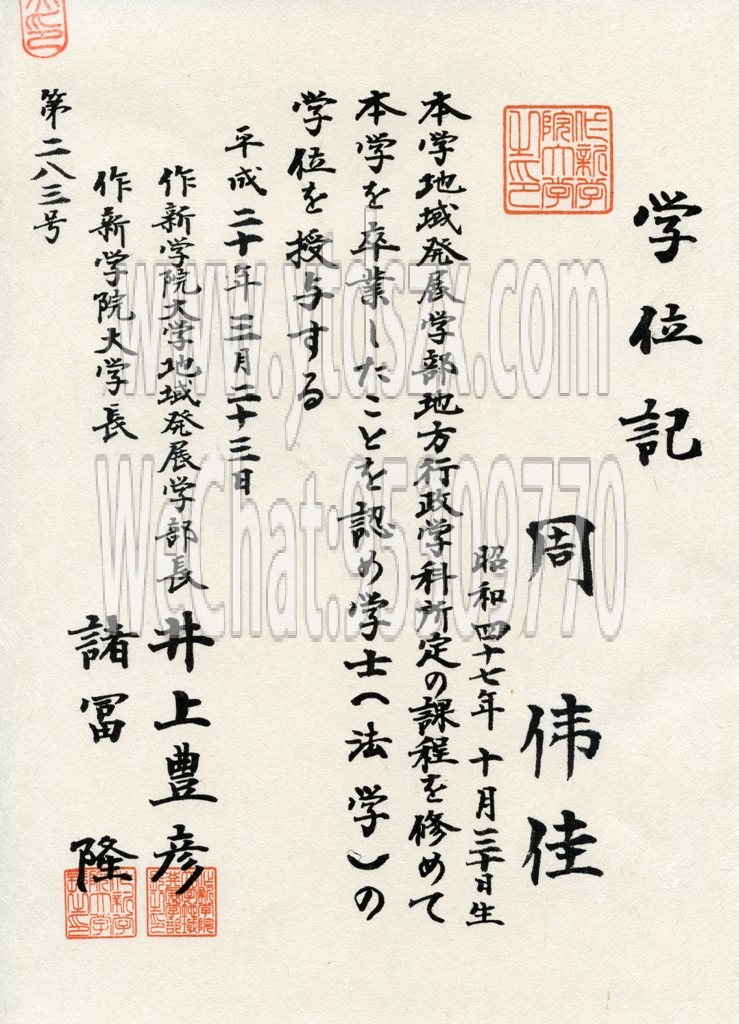 学位記
周伟佳
昭和四十七年十月三十日生
本学地域発展学部地方行政学科所定の課程を修めて
本学を卒業したことを認め学士(法学)の
学位を授与する
平成二十年三月二十三日
作新学院大学地域発展学部長 井上豊彦
作新学院大学長 諸冨隆
第二八三号
作新学院大学之印
www.ytdszx.com